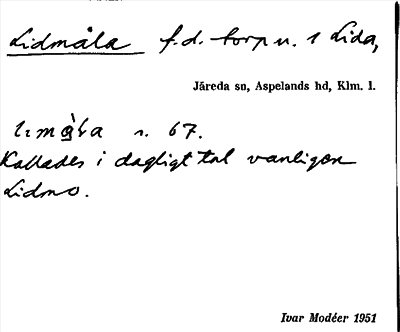 Lidmåla f.d. torp u. 1 Lida,
Järeda sn, Aspelands hd, Klm. l.
s. 67.
Kallades i dagligt tal vanligen
Lidmo.
Ivar Modéer 1951